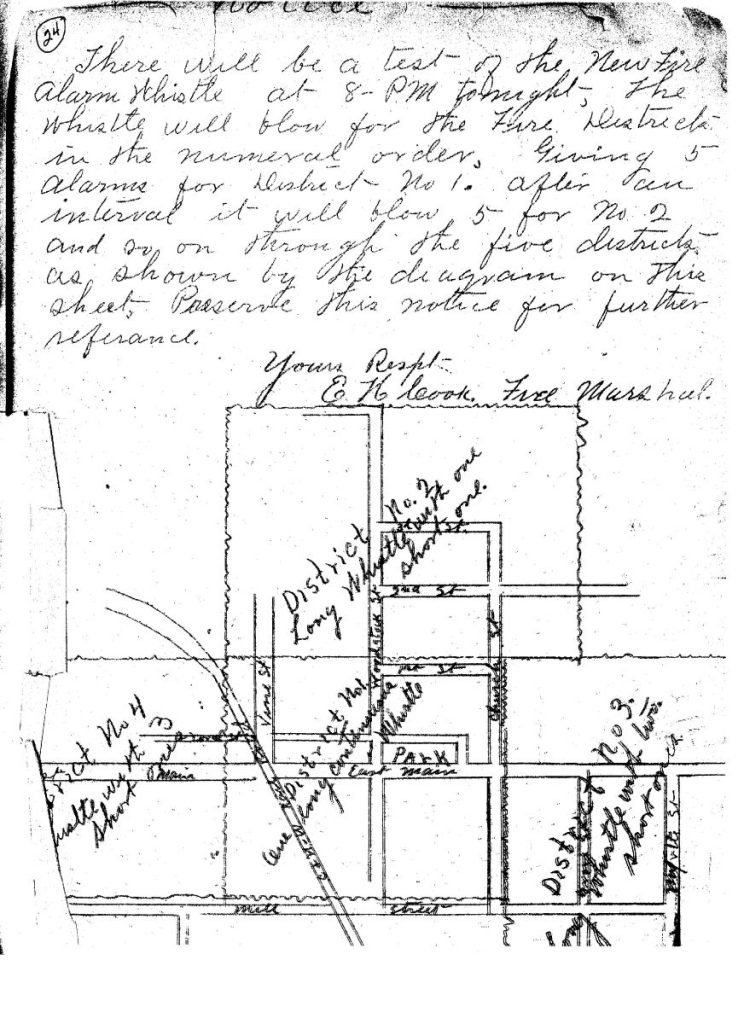 Notice
24
There will be a test of the New Fire
Alarm Whistle at 8-PM tonight, The
Whistle will blow for the Fire Districts
in the numeral order, Giving 5
Alarms for District No 1. after an
interval it will blow 5 for No. 2
and so on through the five districts
as shown by the diagram on this
sheet, Preserve this notice for further
referance.
Yours Respt
E. H Cook. Fire Marshal.
District No. 2
Long Whistle with one
short one.
St.
2nd St
Woodstock St
St
Church St
Vine St
District No 1.
One Long continuous Whistle
PARK
East Main
Main
District No 4
Whistle with 3
Short ones
District No 3.
Long Whistle with two
short ones
Myrtle St
Mill Street